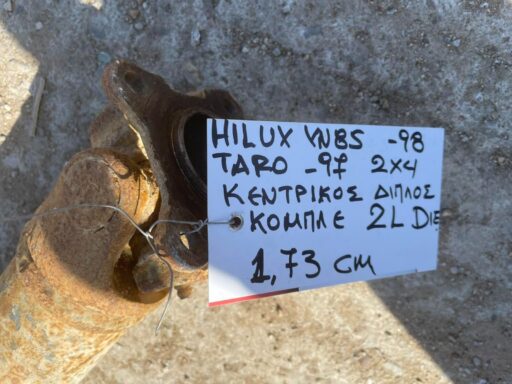 HILUX YN85 -98
TARO -97 2X4
ΚΕΝΤΡΙΚΟΣ ΔΙΠΛΟΣ
ΚΟΜΠΛΕ 2L DIE
1,73 CM